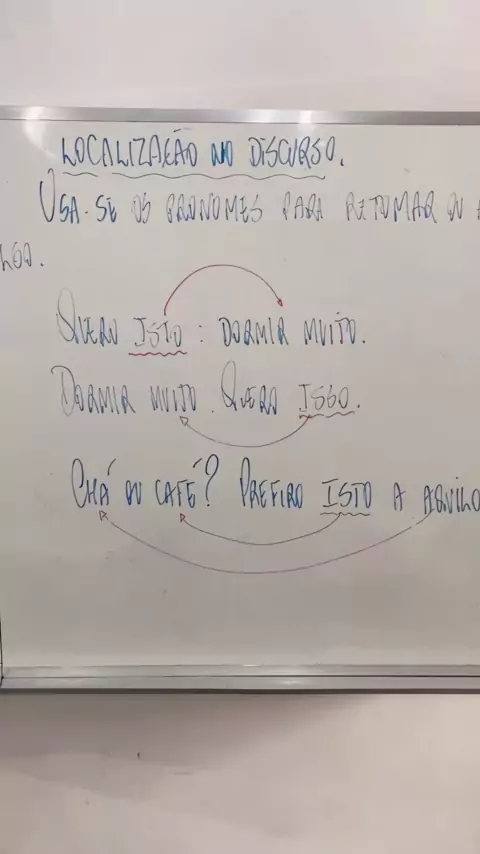 LOCALIZAÇÃO NO DISCURSO.
USA-SE OS PRONOMES PARA RETOMAR OU
QUERO ISTO: DORMIR MUITO.
DORMIR MUITO. QUERO ISSO.
CHÁ OU CAFÉ? PREFIRO ISTO A AQUILO